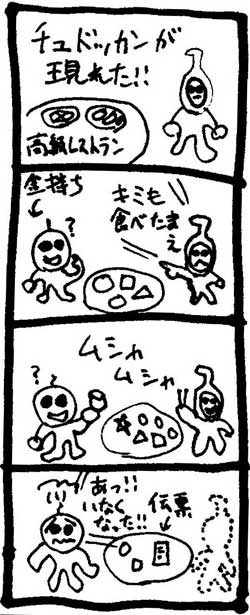 チュドッカンが
現れた!!
高級レストラン
金持ち
?
キミも
食べたまえ
? ?
ムシャ
ムシャ
あっ!!
いなく
なった!!
伝票